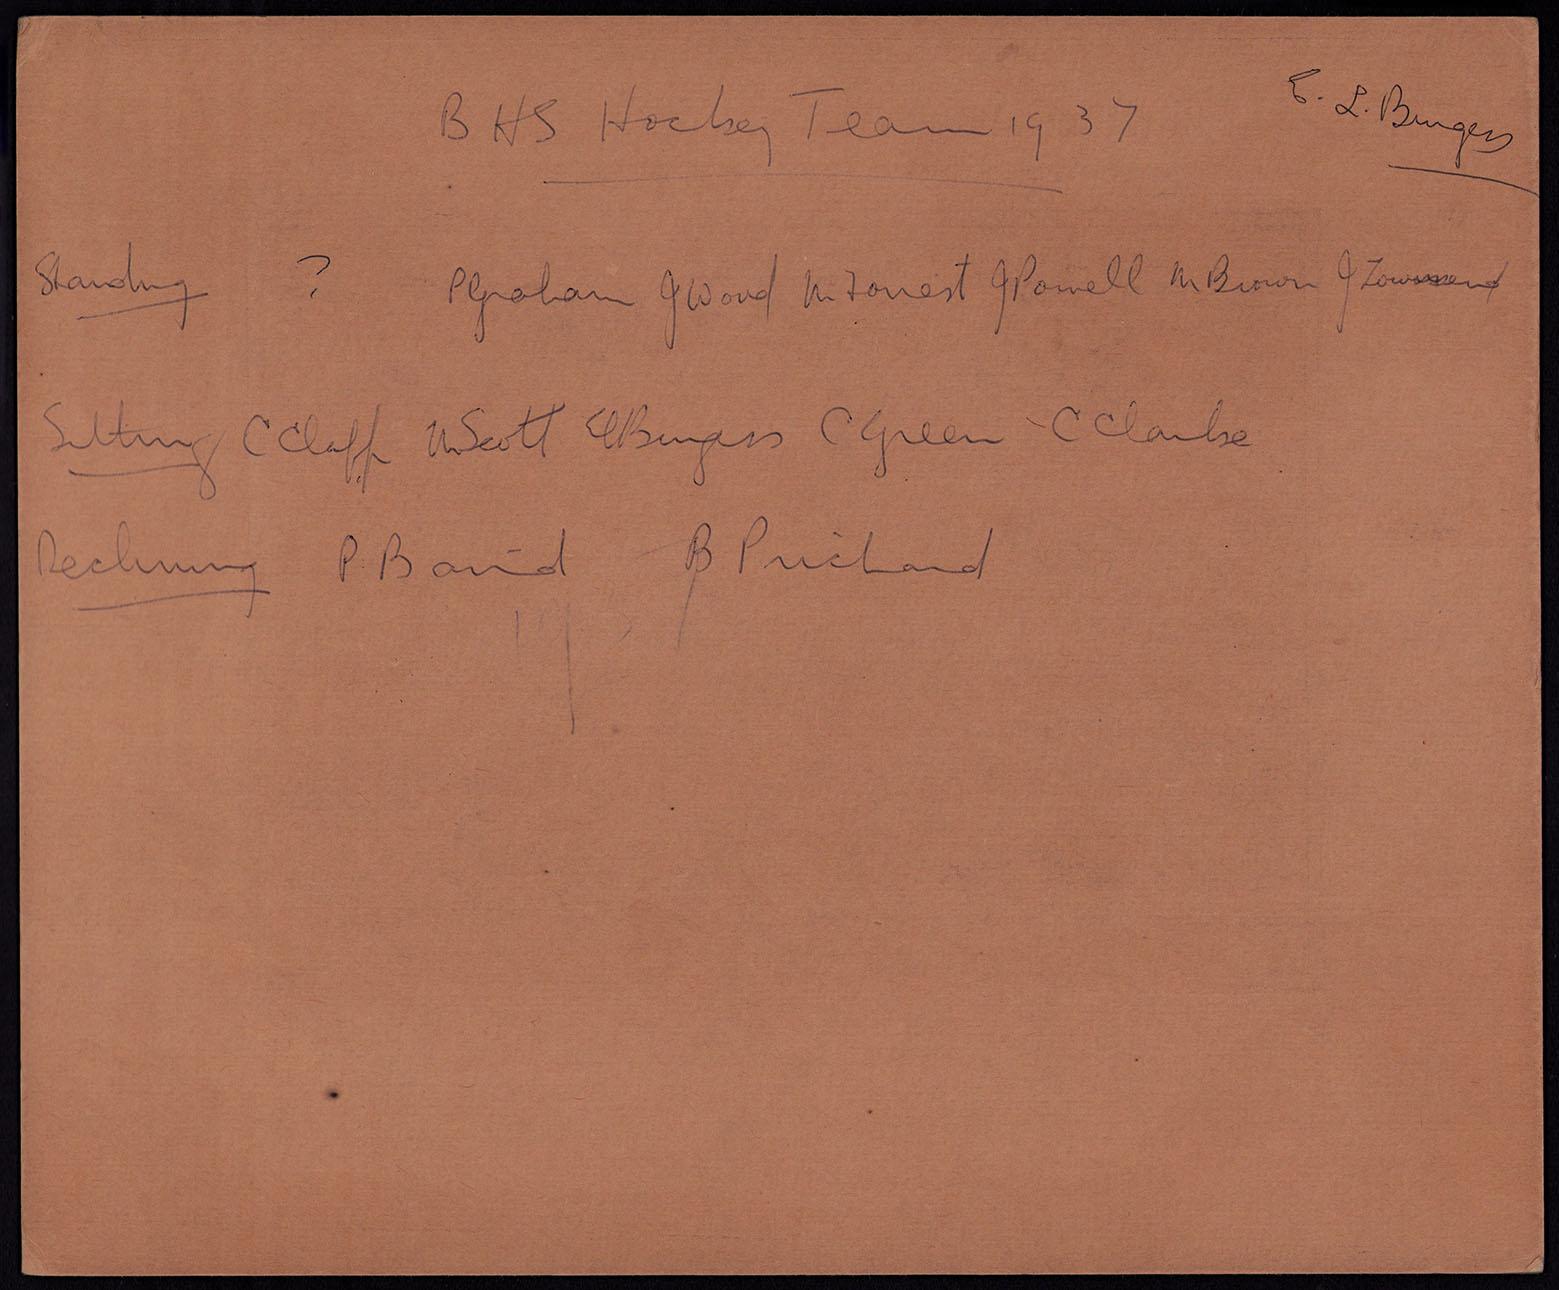 E. L. Burgess
BHS Hockey Team 1937
Standing ? P Graham J Wood M Forrest J Powell M Brown J Townsend
Sitting C Clapp M Scott EL Burgess C Green C Clarke
Reclining P Baird B Prichard